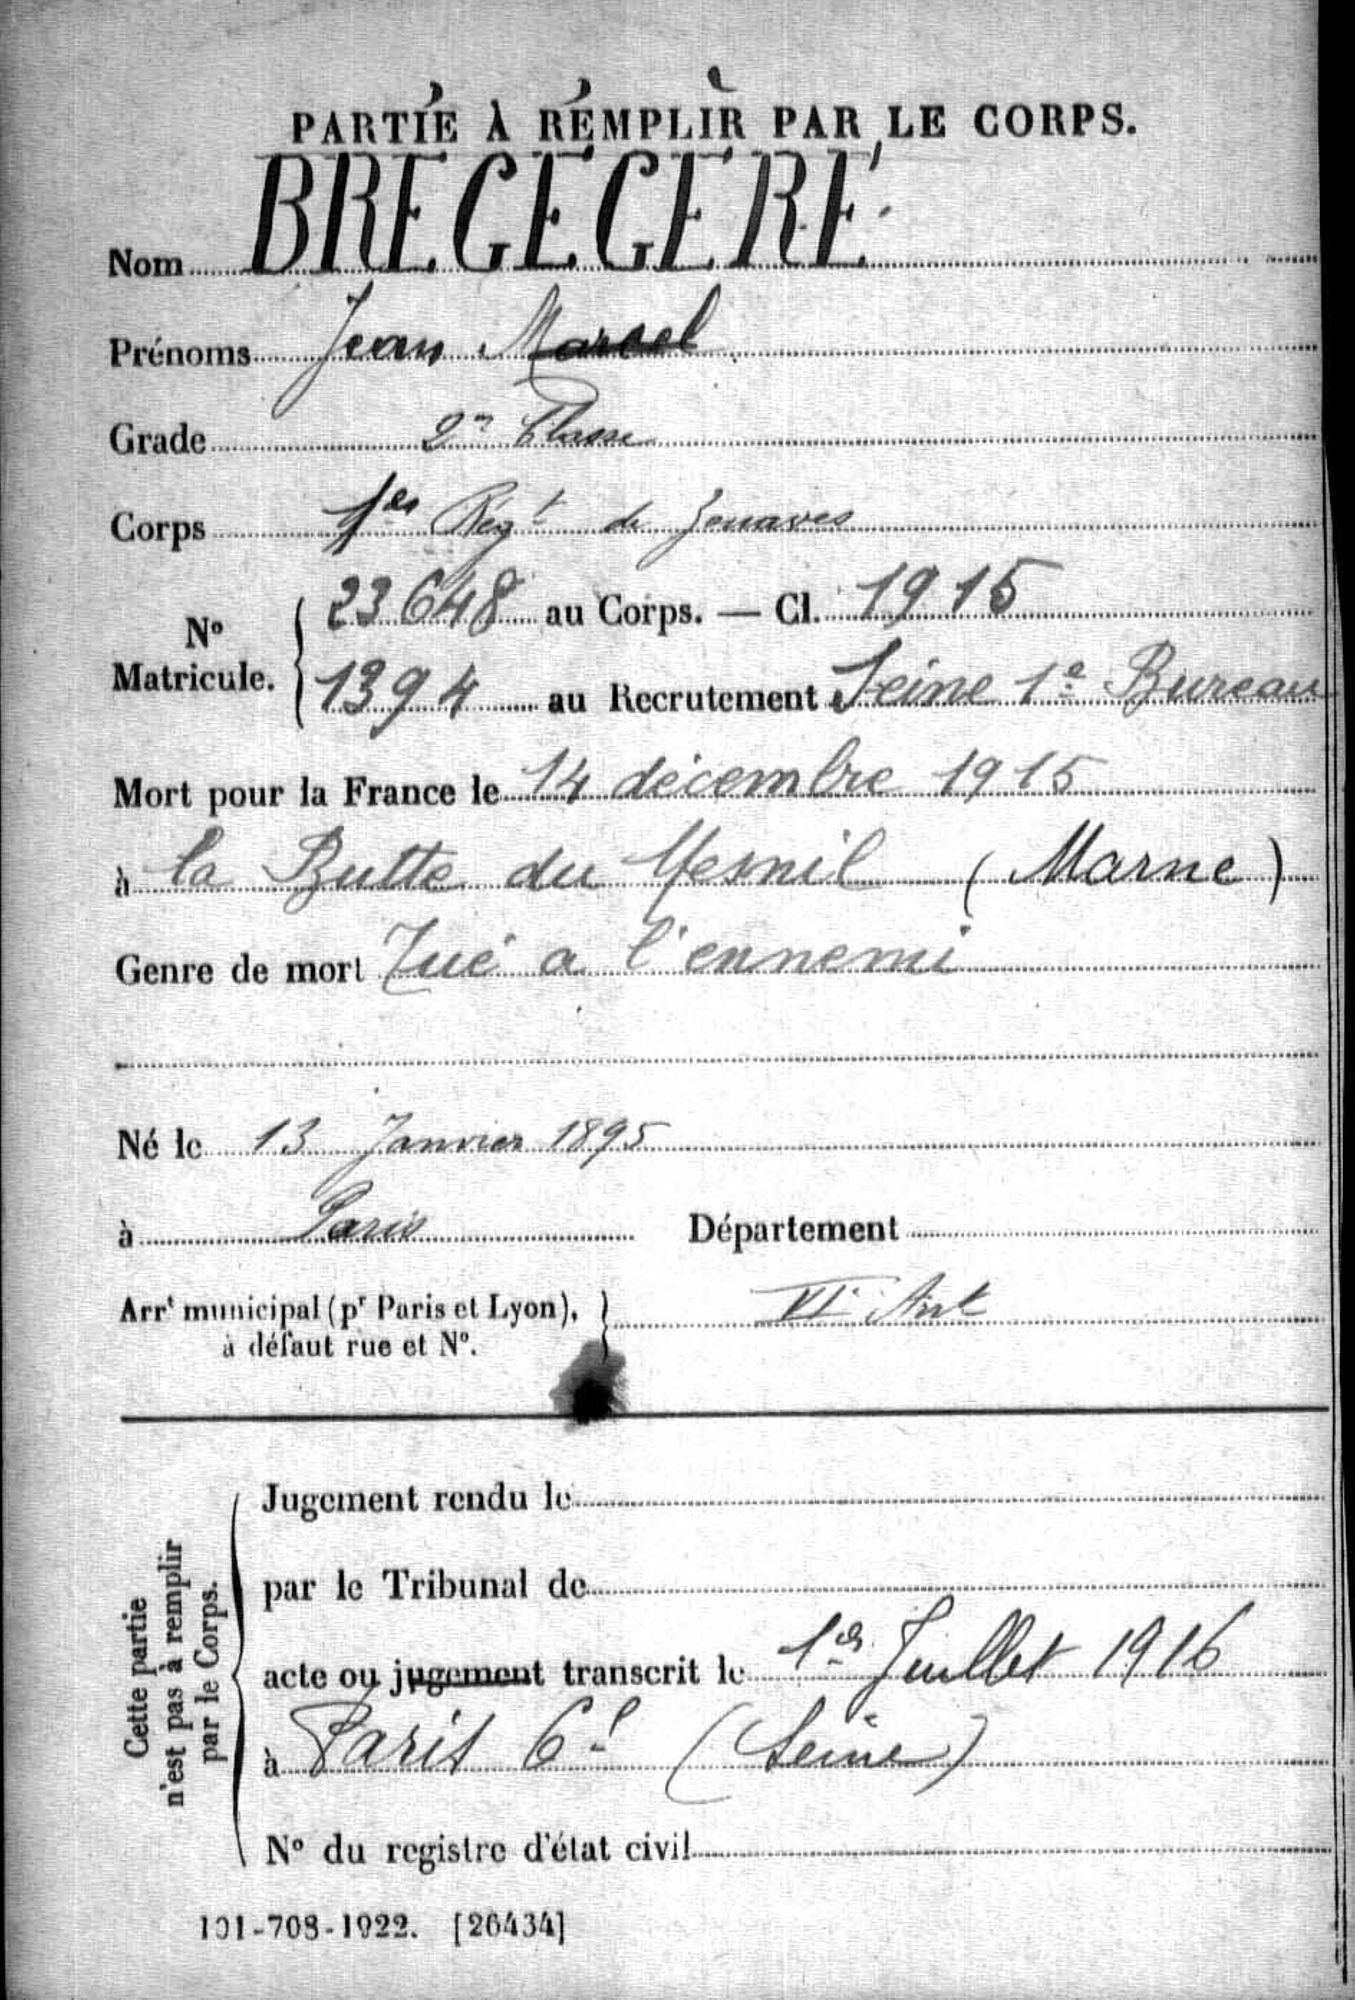 PARTIE À REMPLIR PAR LE CORPS.
Nom BRÉGÉGÈRE
Prénoms Jean Marcel
Grade 2e Classe
Corps 1er Régt de Zouaves
No Matricule. 23648 au Corps. — Cl. 1915
1394 au Recrutement Seine 1e Bureau
Mort pour la France le 14 décembre 1915
à la Butte du Mesnil (Marne)
Genre de mort Tué a l'ennemi
Né le 13 Janvier 1895
à Paris Département
Arrt municipal (pr Paris et Lyon), VIe Arrt
à défaut rue et No.
Cette partie n'est pas à remplir par le Corps.
Jugement rendu le
par le Tribunal de
acte ou jugement transcrit le 1er Juillet 1916
à Paris 6e (Seine)
No du registre d'état civil
101-708-1922. [26434]